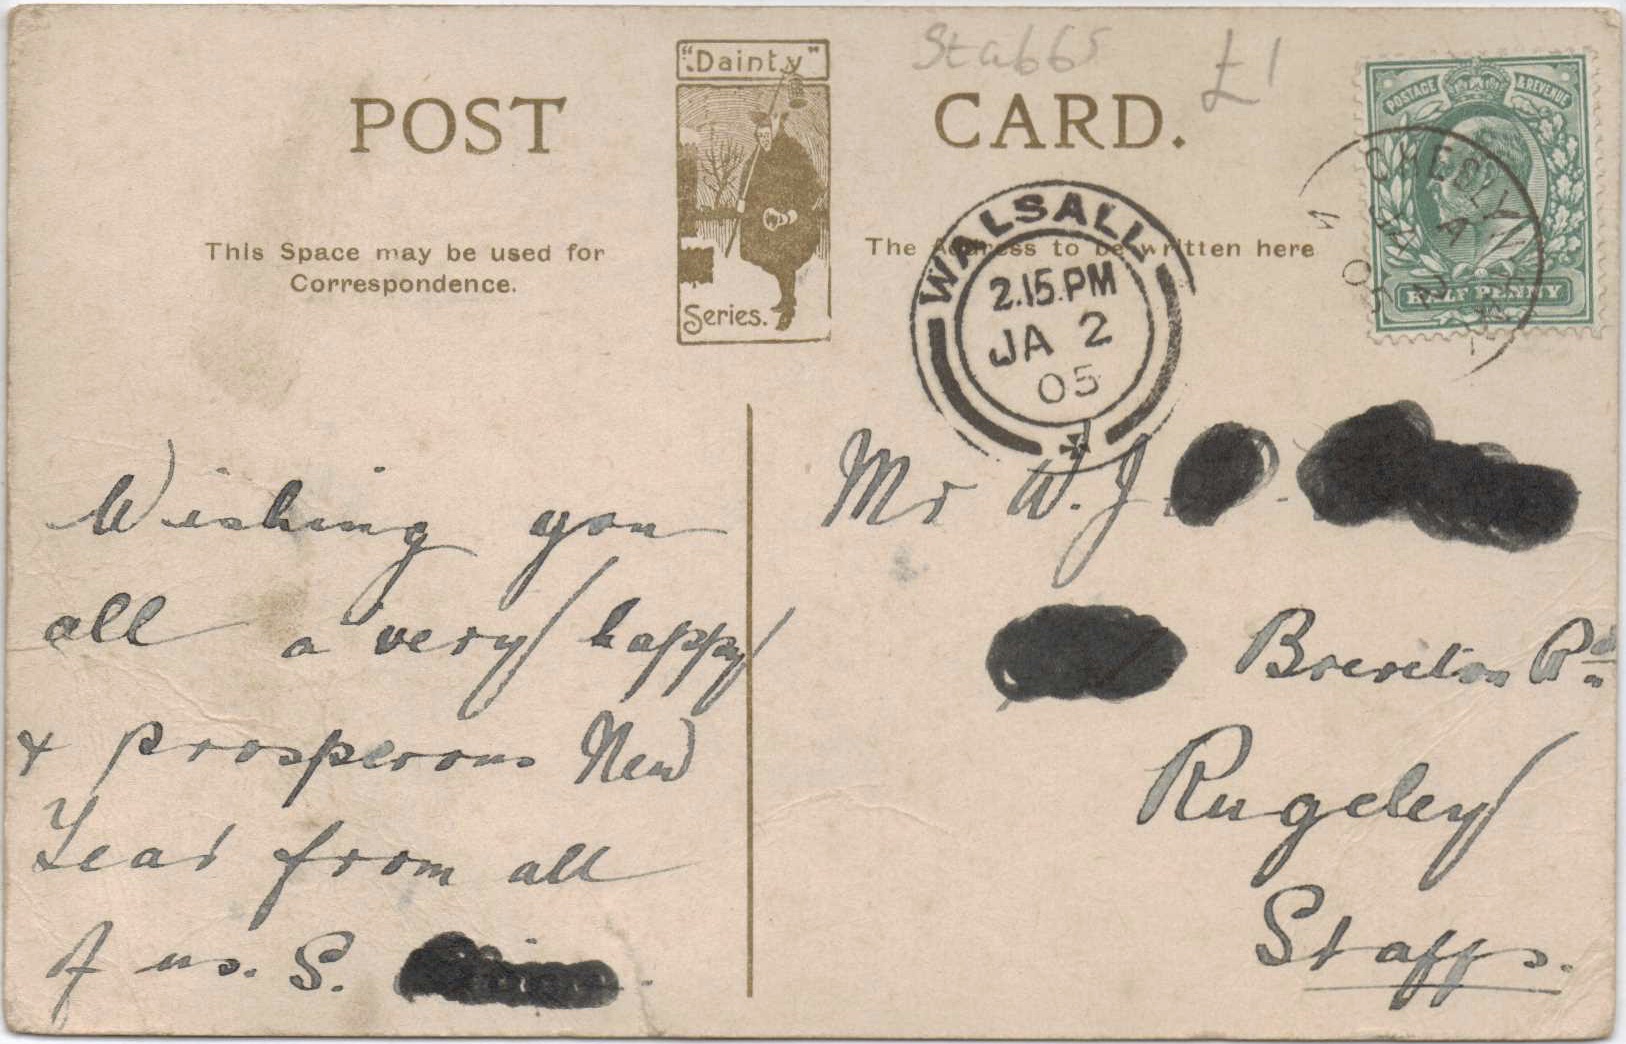 "Dainty"
Stabbs £1
POST CARD.
POSTAGE & REVENUE
HALF PENNY
CHESLYN
A
JA 2
05
This Space may be used for
Correspondence.
The Address to be written here
Series.
WALSALL
2.15.PM
JA 2
05
Wishing you
all a very happy
& prosperous New
Year from all
of us. S.
Mr W. J
Brereton Rd
Rugeley
Staffs.